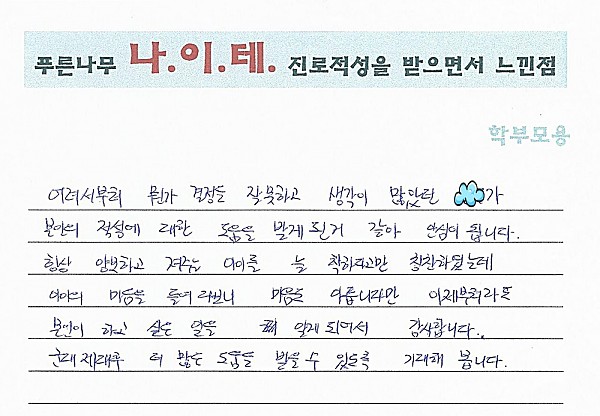 푸른나무 나.이.테. 진로적성을 받으면서 느낀점
학부모용
어려서부터 뭔가 결정을 잘못하고 생각이 많았던 가
본인의 적성에 대한 도움을 받게 된거 같아 안심이 됩니다.
항상 양보하고 져주는 아이를 늘 착하다고만 칭찬하였는데
아이의 마음을 들여다보니 마음은 아픕니다만 이제부터라도
본인이 하고 싶은 일을 찾 알게 되어서 감사합니다.
군대 제대후 더 많은 도움을 받을 수 있도록 기대해 봅니다.